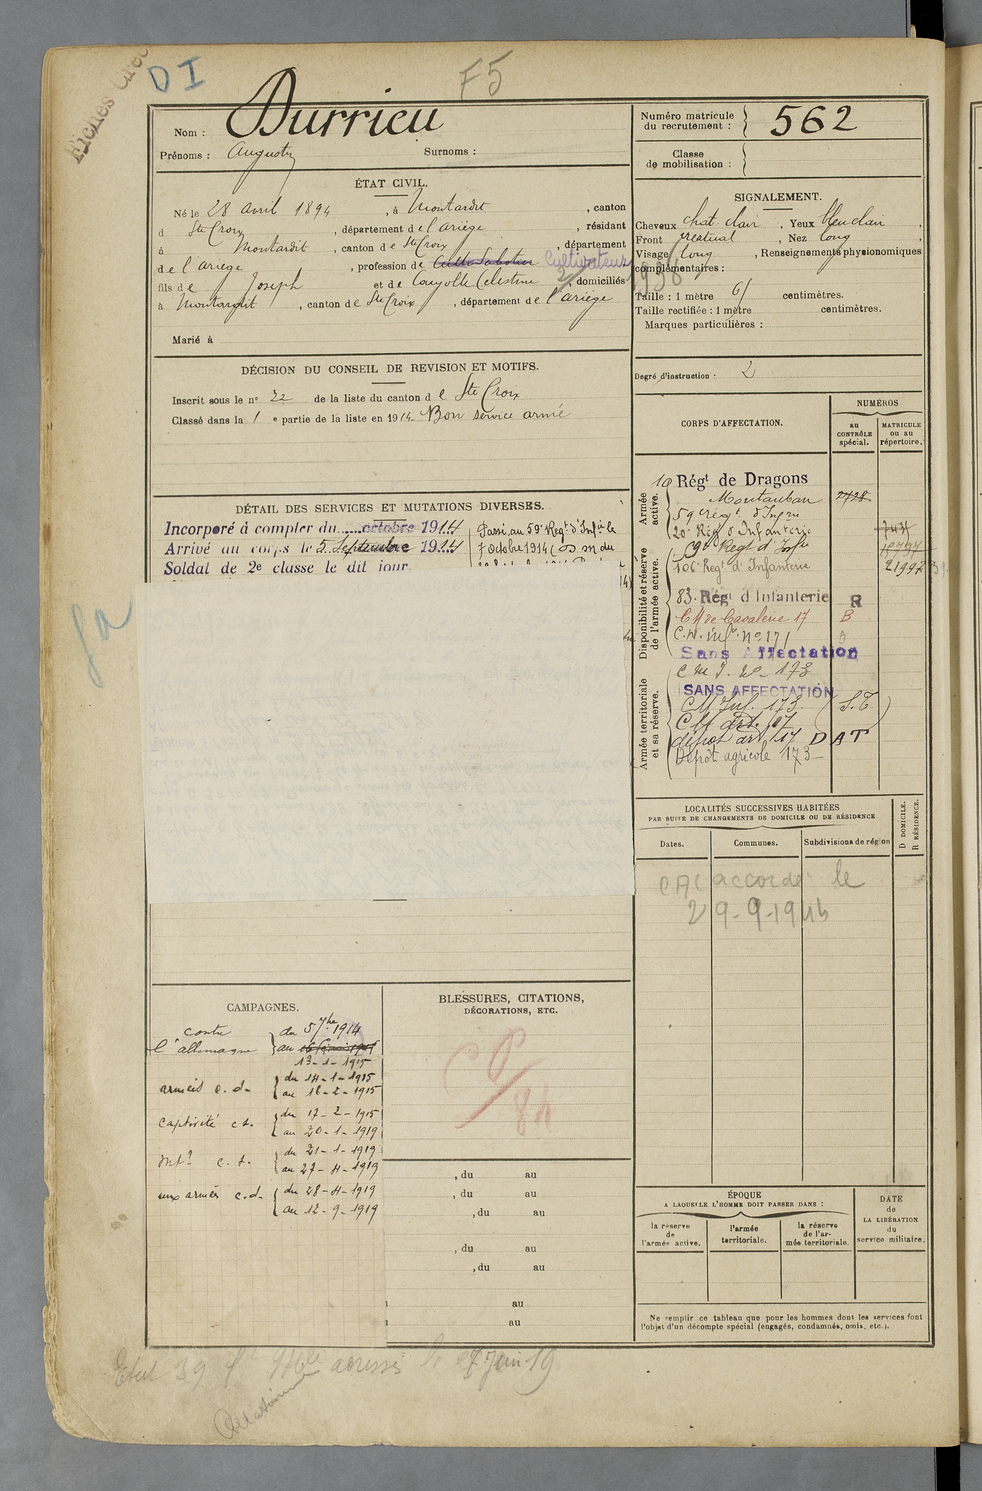 D I
F5
Nom : Durrieu
Prénoms : Augustin
Surnoms :
Numéro matricule du recrutement : 562
Classe de mobilisation :
ÉTAT CIVIL.
Né le 28 avril 1894, à Montardit, canton
d Ste Croix, département de l'ariège, résidant
à Montardit, canton de Ste Croix, département
de l'ariège, profession de Cultivateur
fils de Joseph et de Celestine, domiciliés
à Montardit, canton de Ste Croix, département de l'ariège
Marié à
SIGNALEMENT.
Cheveux chat. clair. Yeux bleu clair
Front vertical, Nez long
Visage long, Renseignements physionomiques
complémentaires :
Taille : 1 mètre 61 centimètres.
Taille rectifiée : 1 mètre centimètres.
Marques particulières :
Degré d'instruction : 2
DÉCISION DU CONSEIL DE REVISION ET MOTIFS.
Inscrit sous le n° 22 de la liste du canton de Ste Croix
Classé dans la 1e partie de la liste en 1914. Bon service armé
DÉTAIL DES SERVICES ET MUTATIONS DIVERSES.
Incorporé à compter du octobre 1914
Arrivé au corps le 5 Septembre 1914
Soldat de 2e classe le dit jour
Passé au 59e Regt d'Infie le
7 octobre 1914
CORPS D'AFFECTATION.
NUMÉROS
au CONTRÔLE spécial.
MATRICULE ou au répertoire.
Armée active.
10 Régt de Dragons
Montauban 2728
59e régt d'Infie
20e Rég d'Infanterie
Disponibilité et réserve de l'armée active.
59e Regt d'Infie
106e Regt d'Infanterie 21997
83. Régt d'Infanterie R
C M de Cavalerie 17 B
C.M. inf. n° 171
Sans Affectation
Armée territoriale et sa réserve.
C M I. n° 173
SANS AFFECTATION
CM Inf. 173. (S.T)
CM art. 17
dépot art 117 DAT
Dépôt agricole 173
LOCALITÉS SUCCESSIVES HABITÉES
PAR SUITE DE CHANGEMENTS DE DOMICILE OU DE RÉSIDENCE
Dates.
Communes.
Subdivisions de région
D DOMICILE.
R RÉSIDENCE.
accordé le
29-9-1946
CAMPAGNES.
contre l'allemagne du 5 7bre 1914
au 13-1-1915
armées c.d. du 14-1-1915
au 16-2-1915
captivité c.s. du 17-2-1915
au 20-1-1919
Intr c.s. du 21-1-1919
au 27-4-1919
aux armées c.d. du 28-4-1919
au 12-9-1919
BLESSURES, CITATIONS,
DÉCORATIONS, ETC.
, du au
, du au
, du au
, du au
, du au
au
au
ÉPOQUE
A LAQUELLE L'HOMME DOIT PASSER DANS :
la réserve de l'armée active.
l'armée territoriale.
la réserve de l'armée territoriale.
DATE de LA LIBÉRATION du service militaire.
Ne remplir ce tableau que pour les hommes dont les services font
l'objet d'un décompte spécial (engagés, condamnés, omis, etc.).